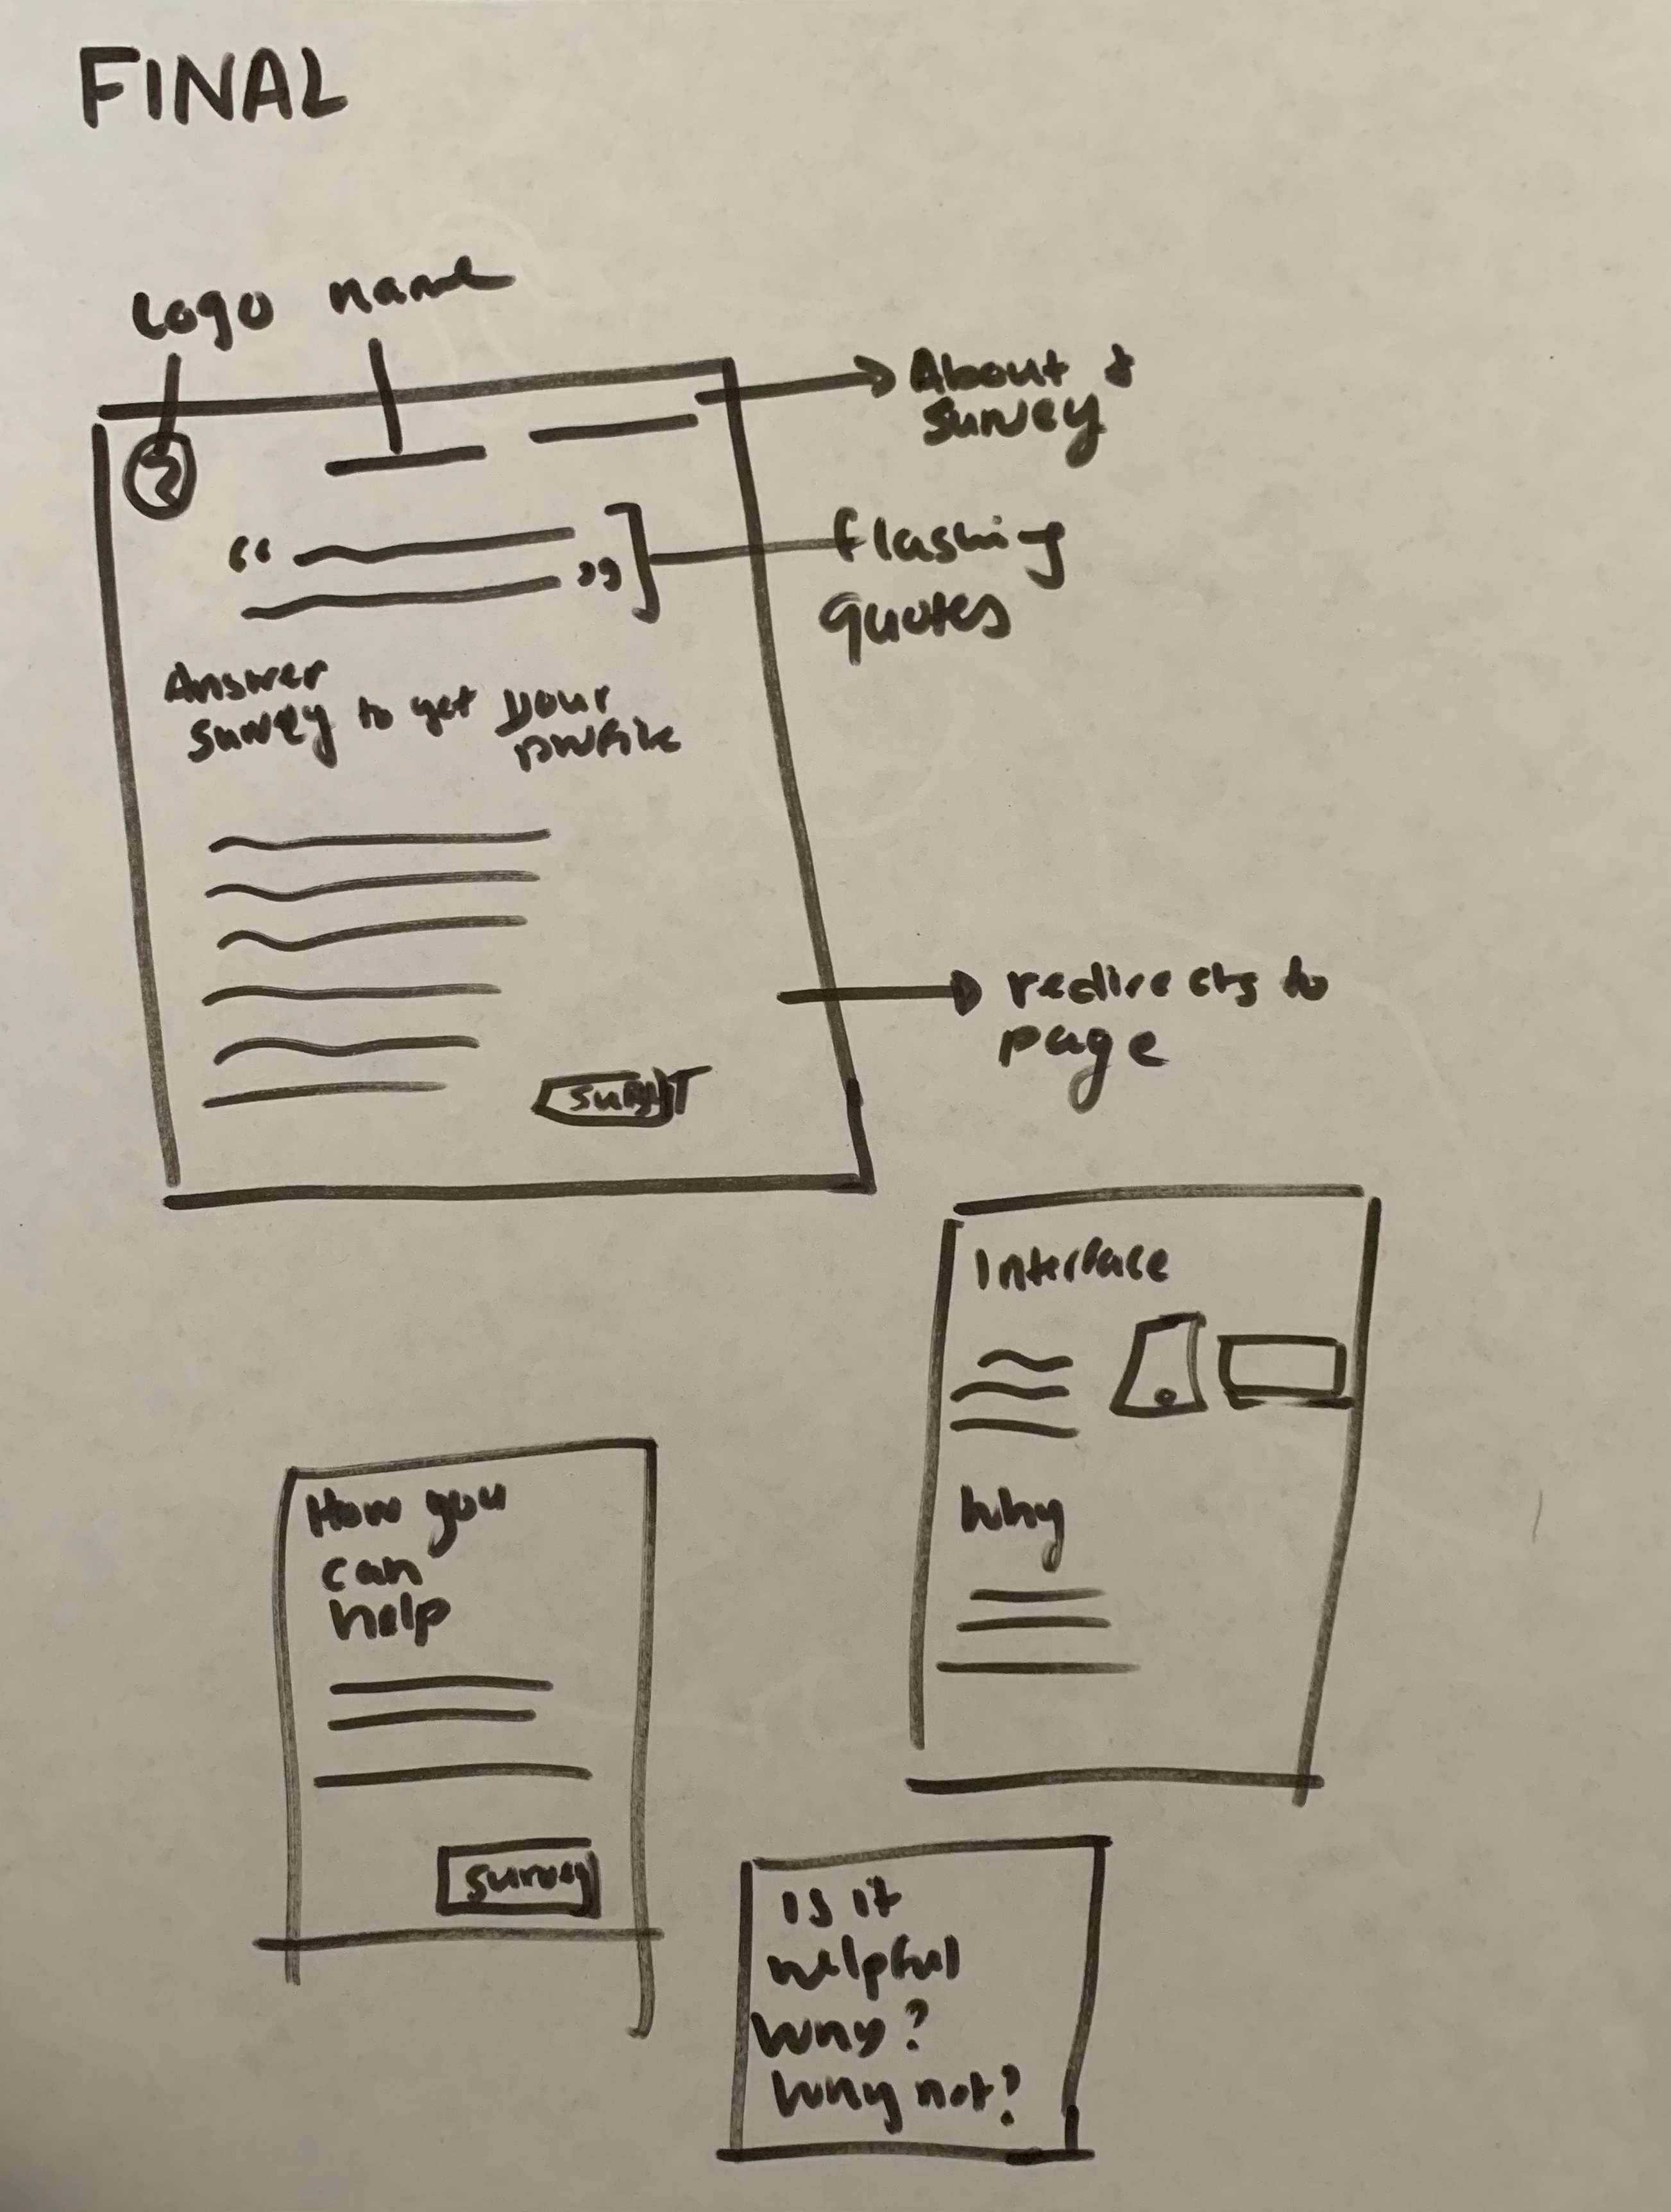 FINAL
Logo name
About &
survey
“ ”
flashing
quotes
Answer
survey to get your
profile
redirects to
page
SUBMIT
Interface
Why
How you
can
help
survey
Is it
helpful
Why?
Why not?